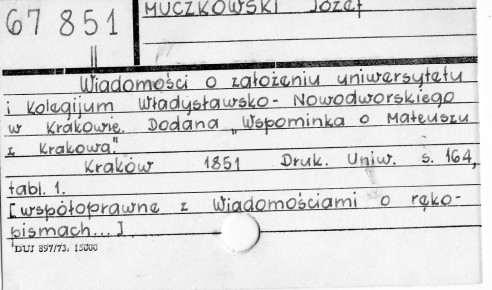 67851
MUCZKOWSKI Józef
||
Wiadomości o założeniu uniwersytetu
i Kolegijum Władysławsko-Nowodworskiego
w Krakowie. Dodana „Wspominka o Mateuszu
z Krakowa."
Kraków 1851 Druk. Uniw. s. 164,
tabl. 1.
[współoprawne z Wiadomościami o ręko-
pismach...]
DUJ 897/73. 15000